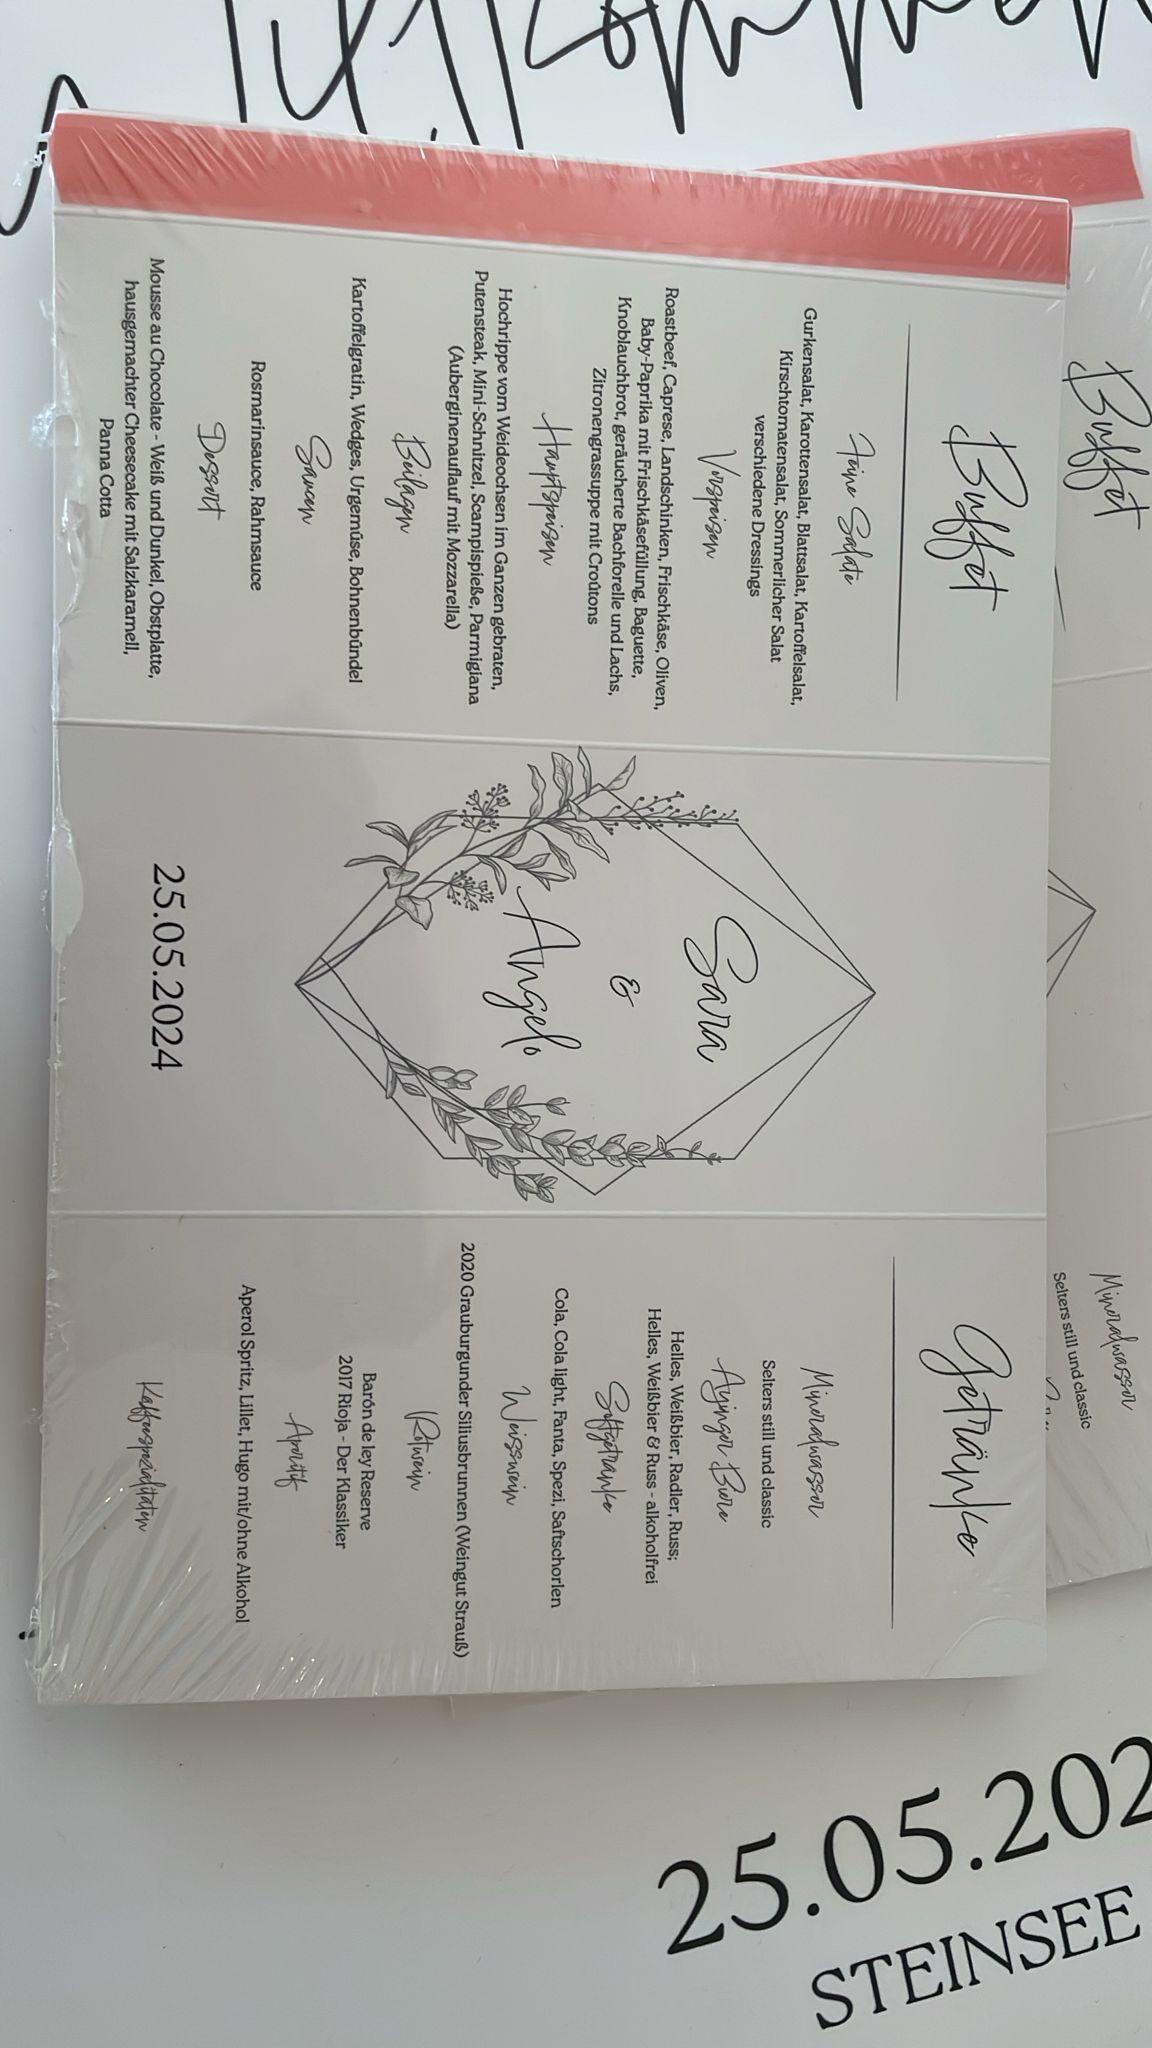 Buffet
Feine Salate
Gurkensalat, Karottensalat, Blattsalat, Kartoffelsalat,
Kirschtomatensalat, Sommerlicher Salat
verschiedene Dressings
Vorspeisen
Roastbeef, Caprese, Landschinken, Frischkäse, Oliven,
Baby-Paprika mit Frischkäsefüllung, Baguette,
Knoblauchbrot, geräucherte Bachforelle und Lachs,
Zitronengrassuppe mit Croûtons
Hauptspeisen
Hochrippe vom Weideochsen im Ganzen gebraten,
Putensteak, Mini-Schnitzel, Scampispieße, Parmigiana
(Auberginenauflauf mit Mozzarella)
Beilagen
Kartoffelgratin, Wedges, Urgemüse, Bohnenbündel
Saucen
Rosmarinsauce, Rahmsauce
Dessert
Mousse au Chocolate - Weiß und Dunkel, Obstplatte,
hausgemachter Cheesecake mit Salzkaramell,
Panna Cotta
Sara
&
Angelo
25.05.2024
Getränke
Mineralwasser
Selters still und classic
Ayinger Biere
Helles, Weißbier, Radler, Russ;
Helles, Weißbier & Russ - alkoholfrei
Softgetränke
Cola, Cola light, Fanta, Spezi, Saftschorlen
Weisswein
2020 Grauburgunder Siliusbrunnen (Weingut Strauß)
Rotwein
Barón de ley Reserve
2017 Rioja - Der Klassiker
Aperitif
Aperol Spritz, Lillet, Hugo mit/ohne Alkohol
Kaffeespezialitäten
Buffet
Mineralwasser
Selters still und classic
25.05.202
STEINSEE